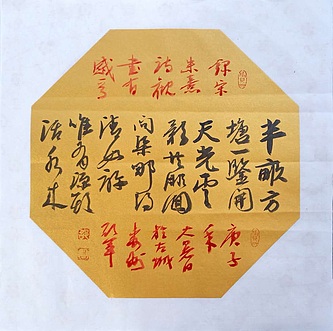 錄宋
朱熹
詩觀
書有
感
半畝方
塘一鑒開
天光雲
影共徘徊
問渠那得
清如許
唯有源頭
活水来
庚子
於古城